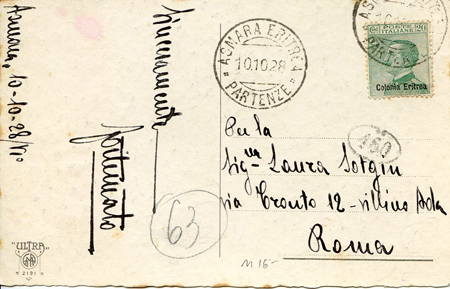 Asmara, 10-10-28/VI°
Sinceramente
Fortunato
ASMARA ERITREA
10.10.28
* PARTENZE *
ASMARA
PARTENZE
POSTE ITALIANE
Colonia Eritrea
Per la
Sig.na Laura Sotgiu
via Tronto 12 - villino Ada
Roma
160
63
M 16-
"ULTRA"
2191